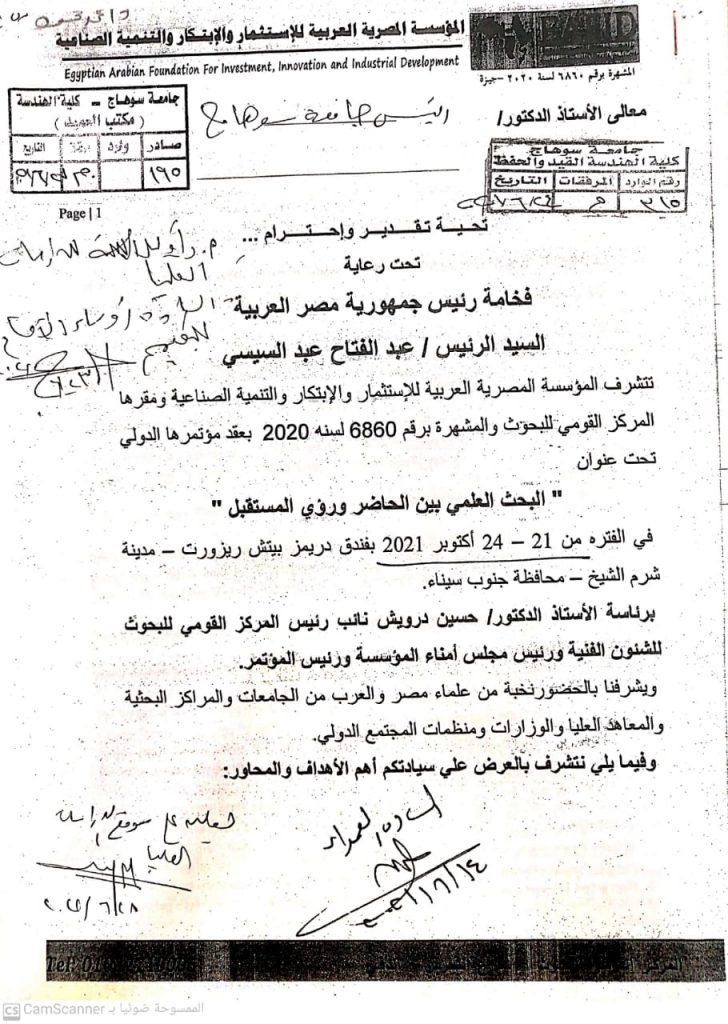 المؤسسة المصرية العربية للإستثمار والإبتكار والتنمية الصناعية
Egyptian Arabian Foundation For Investment, Innovation and Industrial Development
المشهرة برقم ٦٨٦٠ لسنة ٢٠٢٠ -جيزة
معالى الأستاذ الدكتور/
رئيس جامعة سوهاج
جامعة سوهاج - كلية الهندسة
( مكتب العميد )
صادر
وارد
التاريخ
١٩٥
جامعة سوهاج
كلية الهندسة القيد والحفظ
رقم الوارد
المرفقات
التاريخ
٣١٥
Page | 1
تحية تقدير وإحترام ...
تحت رعاية
فخامة رئيس جمهورية مصر العربية
السيد الرئيس / عبد الفتاح عبد السيسي
تتشرف المؤسسة المصرية العربية للإستثمار والإبتكار والتنمية الصناعية ومقرها
المركز القومي للبحوث والمشهرة برقم 6860 لسنه 2020 بعقد مؤتمرها الدولي
تحت عنوان
" البحث العلمي بين الحاضر ورؤي المستقبل "
في الفتره من 21 – 24 أكتوبر 2021 بفندق دريمز بيتش ريزورت – مدينة
شرم الشيخ – محافظة جنوب سيناء.
برئاسة الأستاذ الدكتور/ حسين درويش نائب رئيس المركز القومي للبحوث
للشئون الفنية ورئيس مجلس أمناء المؤسسة ورئيس المؤتمر.
ويشرفنا بالحضورنخبة من علماء مصر والعرب من الجامعات والمراكز البحثية
والمعاهد العليا والوزارات ومنظمات المجتمع الدولي.
وفيما يلي نتشرف بالعرض علي سيادتكم أهم الأهداف والمحاور:
السادة العمداء
العليا
CS CamScanner الممسوحة ضوئيا بـ